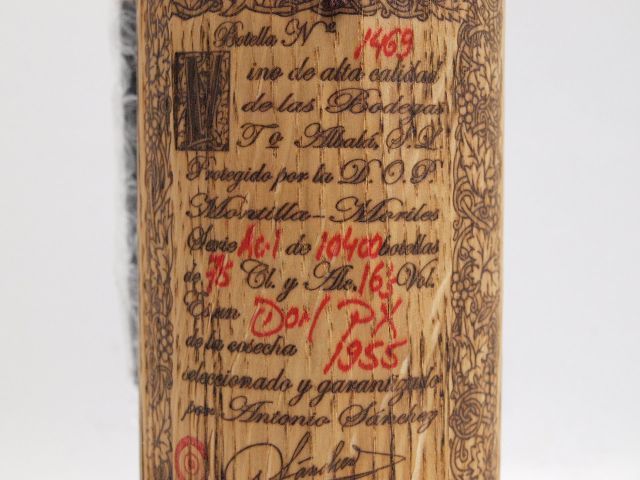 Botella Nº 1469
Vino de alta calidad
de las Bodegas
Tº Albalá, S.L.
Protegido por la D.O.P.
Montilla-Moriles
Serie AC-1 de 10400 botellas
de Cl. y Alc. 16% Vol.
Es un Don PX
de la cosecha 1955
seleccionado y garantizado
por Antonio Sánchez
Sánchez